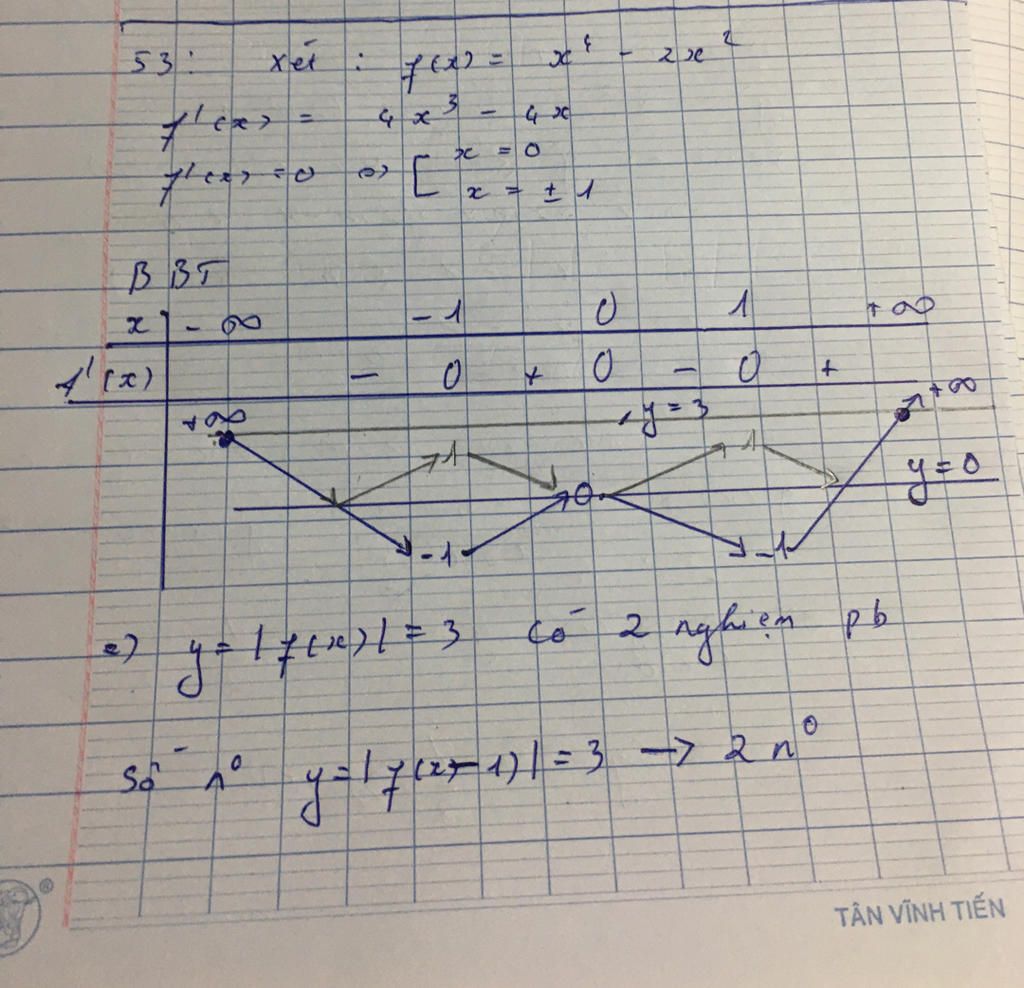 53: Xét : f(x) = x⁴ - 2x²
f'(x) = 4x³ - 4x
f'(x) = 0 ⇔ [ x = 0
x = ± 1
BBT
x -∞ -1 0 1 +∞
f'(x) - 0 + 0 - 0 +
+∞ y = 3 +∞
1 1
0 y = 0
-1 -1
=) y = |f(x)| = 3 Có 2 nghiệm pb
Số n⁰ y = |f(x-1)| = 3 → 2 n⁰
®
TÂN VĨNH TIẾN